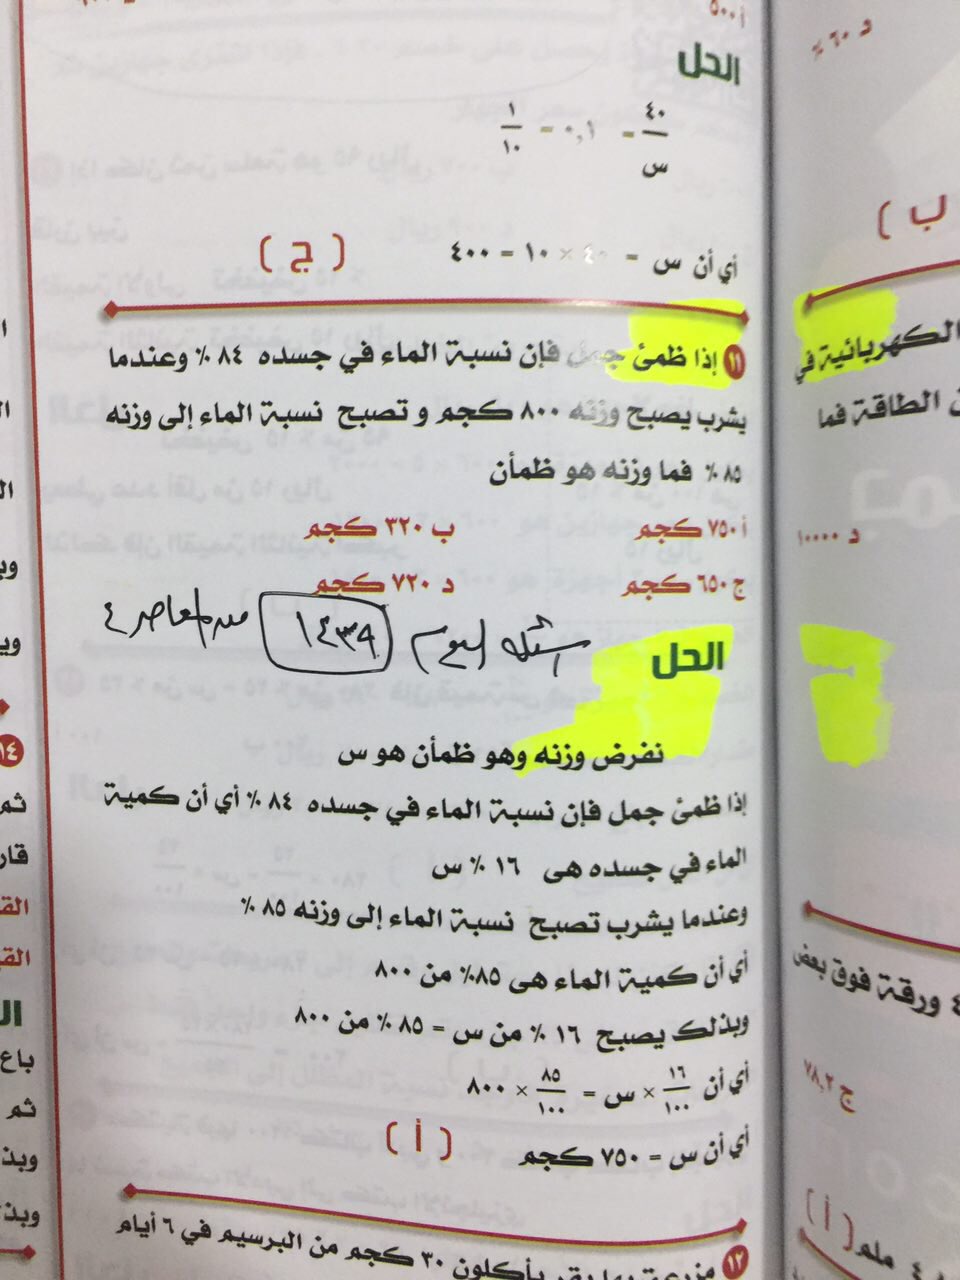 أ ٥٠٠
الحل
٤٠/س = ٠,١ = ١/١٠
أي أن س = ٤٠ × ١٠ = ٤٠٠ (ج)
١١ إذا ظمئ جمل فإن نسبة الماء في جسده ٨٤ % وعندما
يشرب يصبح وزنه ٨٠٠ كجم و تصبح نسبة الماء إلى وزنه
٨٥ % فما وزنه هو ظمأن
أ ٧٥٠ كجم ب ٣٢٠ كجم
ج ٦٥٠ كجم د ٧٢٠ كجم
اليوم ١٤٣٩
الحل
نفرض وزنه وهو ظمأن هو س
إذا ظمئ جمل فإن نسبة الماء في جسده ٨٤ % أي أن كمية
الماء في جسده هى ١٦ % س
وعندما يشرب تصبح نسبة الماء إلى وزنه ٨٥ %
أي أن كمية الماء هى ٨٥% من ٨٠٠
وبذلك يصبح ١٦ % من س = ٨٥ % من ٨٠٠
أي أن ١٦/١٠٠ × س = ٨٥/١٠٠ × ٨٠٠
أي أن س = ٧٥٠ كجم (أ)
١٢ مزرعة بها بقر يأكلون ٣٠ كجم من البرسيم في ٦ أيام
د ٦٠ %
(ب
الكهربائية في
الطاقة فما
د ١٠٠٠٠
ورقة فوق بعض
ج ٧٨,٢
ملم (أ)
١٤
ثم
باع
ثم